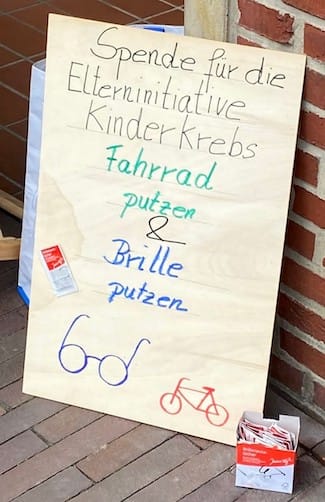 Spende für die
Elterninitiative
Kinderkrebs
Fahrrad
putzen
&
Brille
putzen